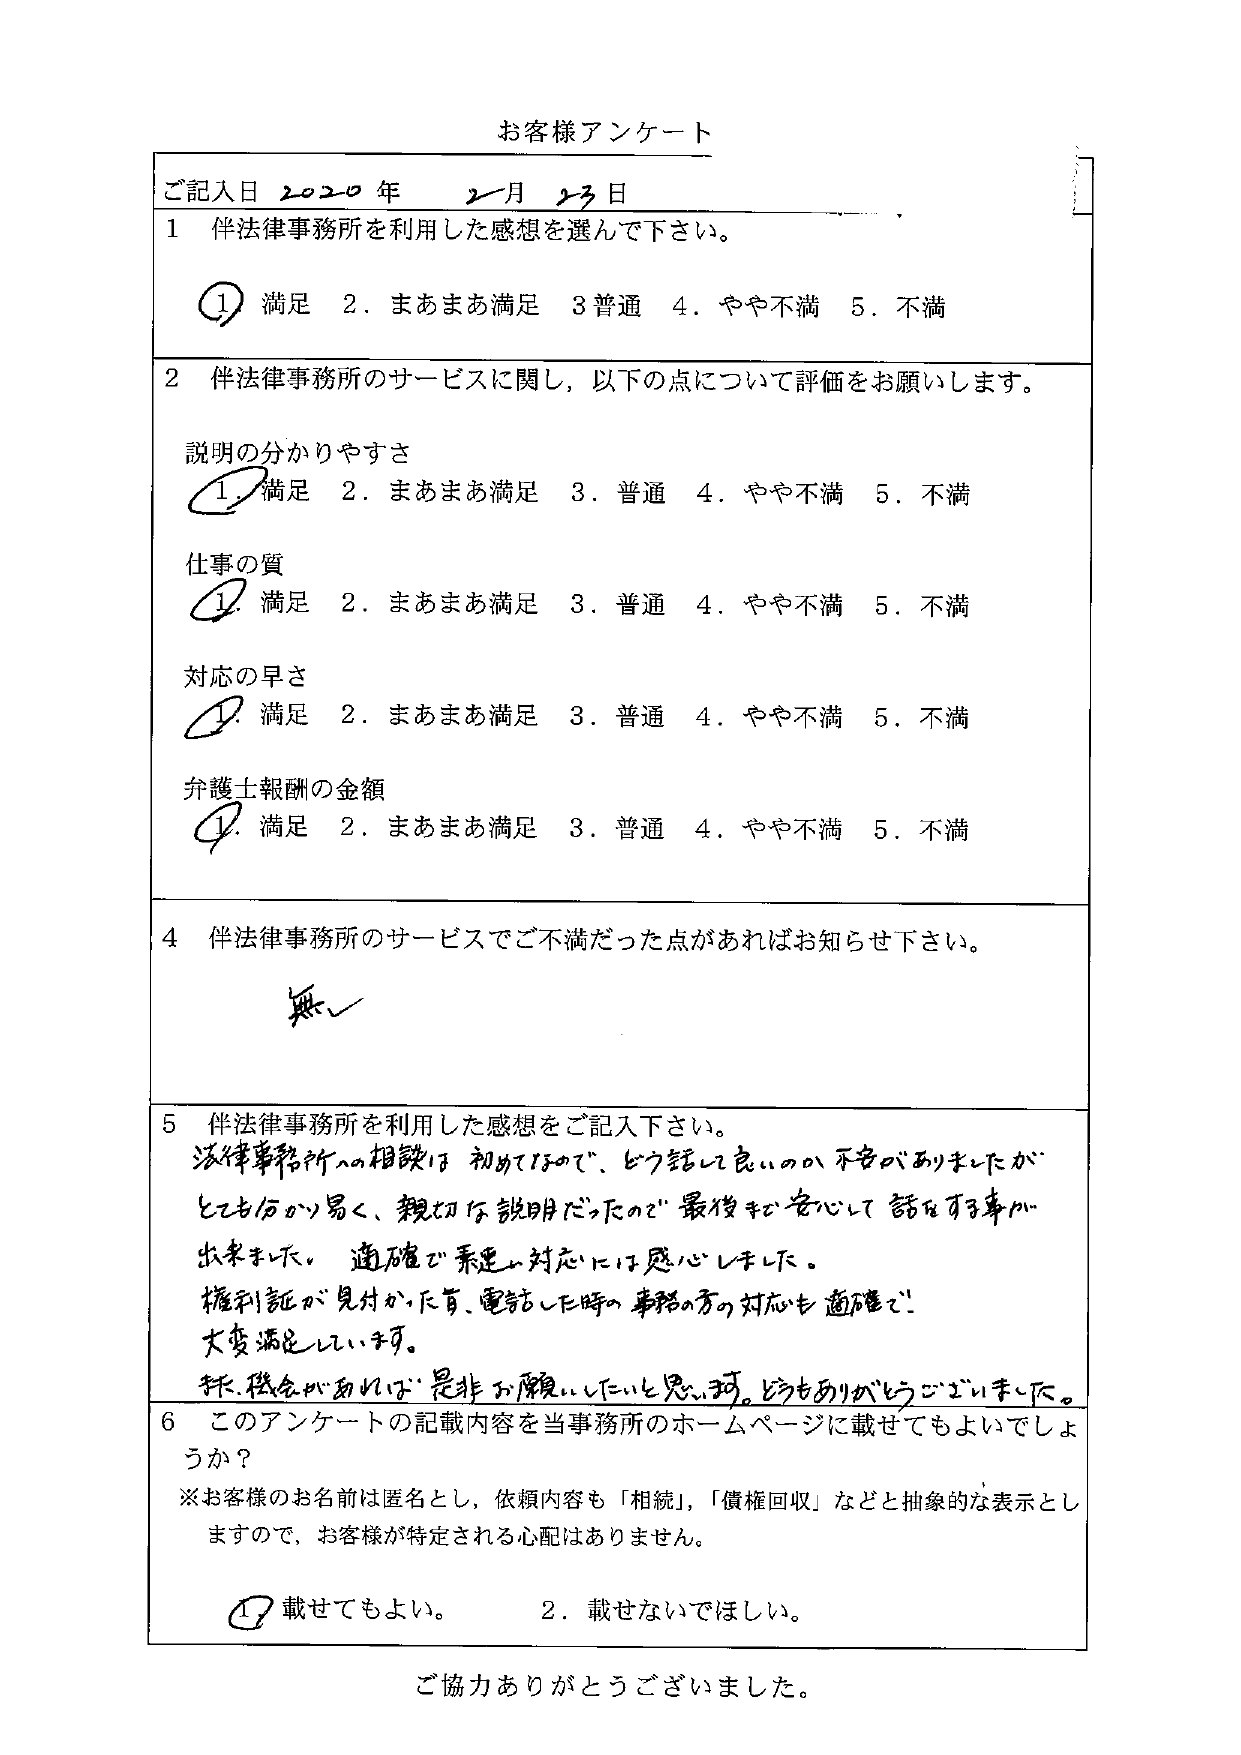 お客様アンケート
ご記入日 2020 年 2月 23日
1 伴法律事務所を利用した感想を選んで下さい。
1 満足 2．まあまあ満足 3普通 4．やや不満 5．不満
2 伴法律事務所のサービスに関し，以下の点について評価をお願いします。
説明の分かりやすさ
1．満足 2．まあまあ満足 3．普通 4．やや不満 5．不満
仕事の質
1．満足 2．まあまあ満足 3．普通 4．やや不満 5．不満
対応の早さ
1．満足 2．まあまあ満足 3．普通 4．やや不満 5．不満
弁護士報酬の金額
1．満足 2．まあまあ満足 3．普通 4．やや不満 5．不満
4 伴法律事務所のサービスでご不満だった点があればお知らせ下さい。
無し
5 伴法律事務所を利用した感想をご記入下さい。
法律事務所への相談は初めてなので、どう話して良いのか不安がありましたが
とても分かり易く、親切な説明だったので最後まで安心して話をする事が
出来ました。適確で素速い対応には感心しました。
権利証が見付かった旨、電話した時の事務の方の対応も適確で!
大変満足しています。
また、機会があれば是非お願いしたいと思います。どうもありがとうございました。
6 このアンケートの記載内容を当事務所のホームページに載せてもよいでしょ
うか？
※お客様のお名前は匿名とし，依頼内容も「相続」，「債権回収」などと抽象的な表示とし
ますので，お客様が特定される心配はありません。
1 載せてもよい。 2．載せないでほしい。
ご協力ありがとうございました。